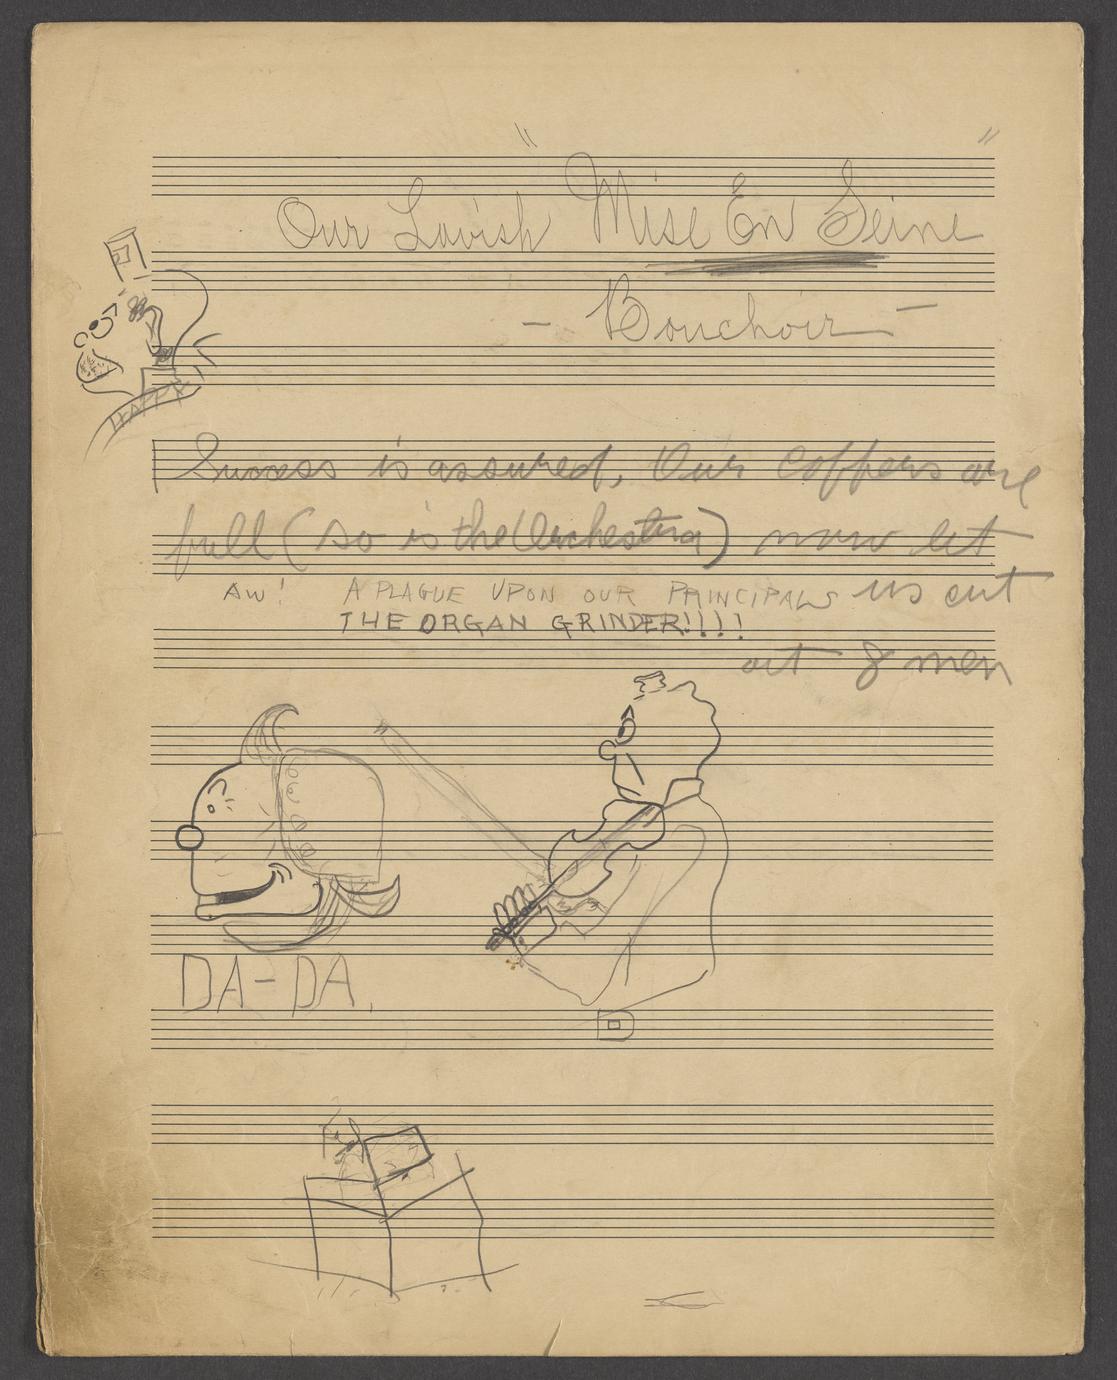 Our Lavish "Mise En Seine"
- Bouchoir -
HAPPY
Success is assured, Our coffers are
full (so is the Orchestra) now let
us cut
AW! A PLAGUE UPON OUR PRINCIPALS
THE ORGAN GRINDER!!!!
out 8 men
DA-DA.